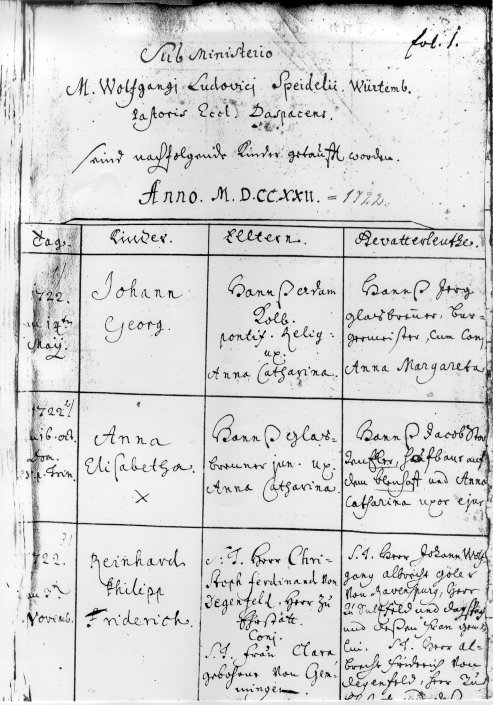 fol. 1.
Sub Ministerio
M. Wolfgangi Ludovici Speidelii Würtemb.
Pastoris Eccl. Daspacens.
seind nachfolgende Kinder getaufft worden.
Anno. M. D.CCXXII. = 1722.
Tag.
Kinder.
Elltern.
Gevatterleuthe.
1/
1722.
14ten
Maij.
Johann
Georg.
Hannß Adam
Kolb.
pontif. Relig:
ux.
Anna Catharina.
Hannß Jerg
Glasbrenner, Bur-
germeister, cum Conj.
Anna Margareta
1722 2/
16. oct.
Dom.
Trin.
Anna
Elisabetha.
x
Hannß Glas-
brenner jun. ux.
Anna Catharina.
Hannß Jacob
Hofbaur auf
dem und Anna
Catharina uxor ejus
3/
1722.
Novemb.
Reinhard
Philipp
Friderich.
S. T. Herr Chri-
stoph Ferdinand von
Degenfeld, Herr zu
Ehestätt.
Conj.
S. T. Frau Clara,
gebohrne von Gem-
mingen.
S. T. Herr Johann Wolf-
gang Albrecht Göler
von Ravenspurg, Herr
zu Sultzfeld und
und
S. T. Herr Al-
brecht Friderich von
Degenfeld, Herr zu